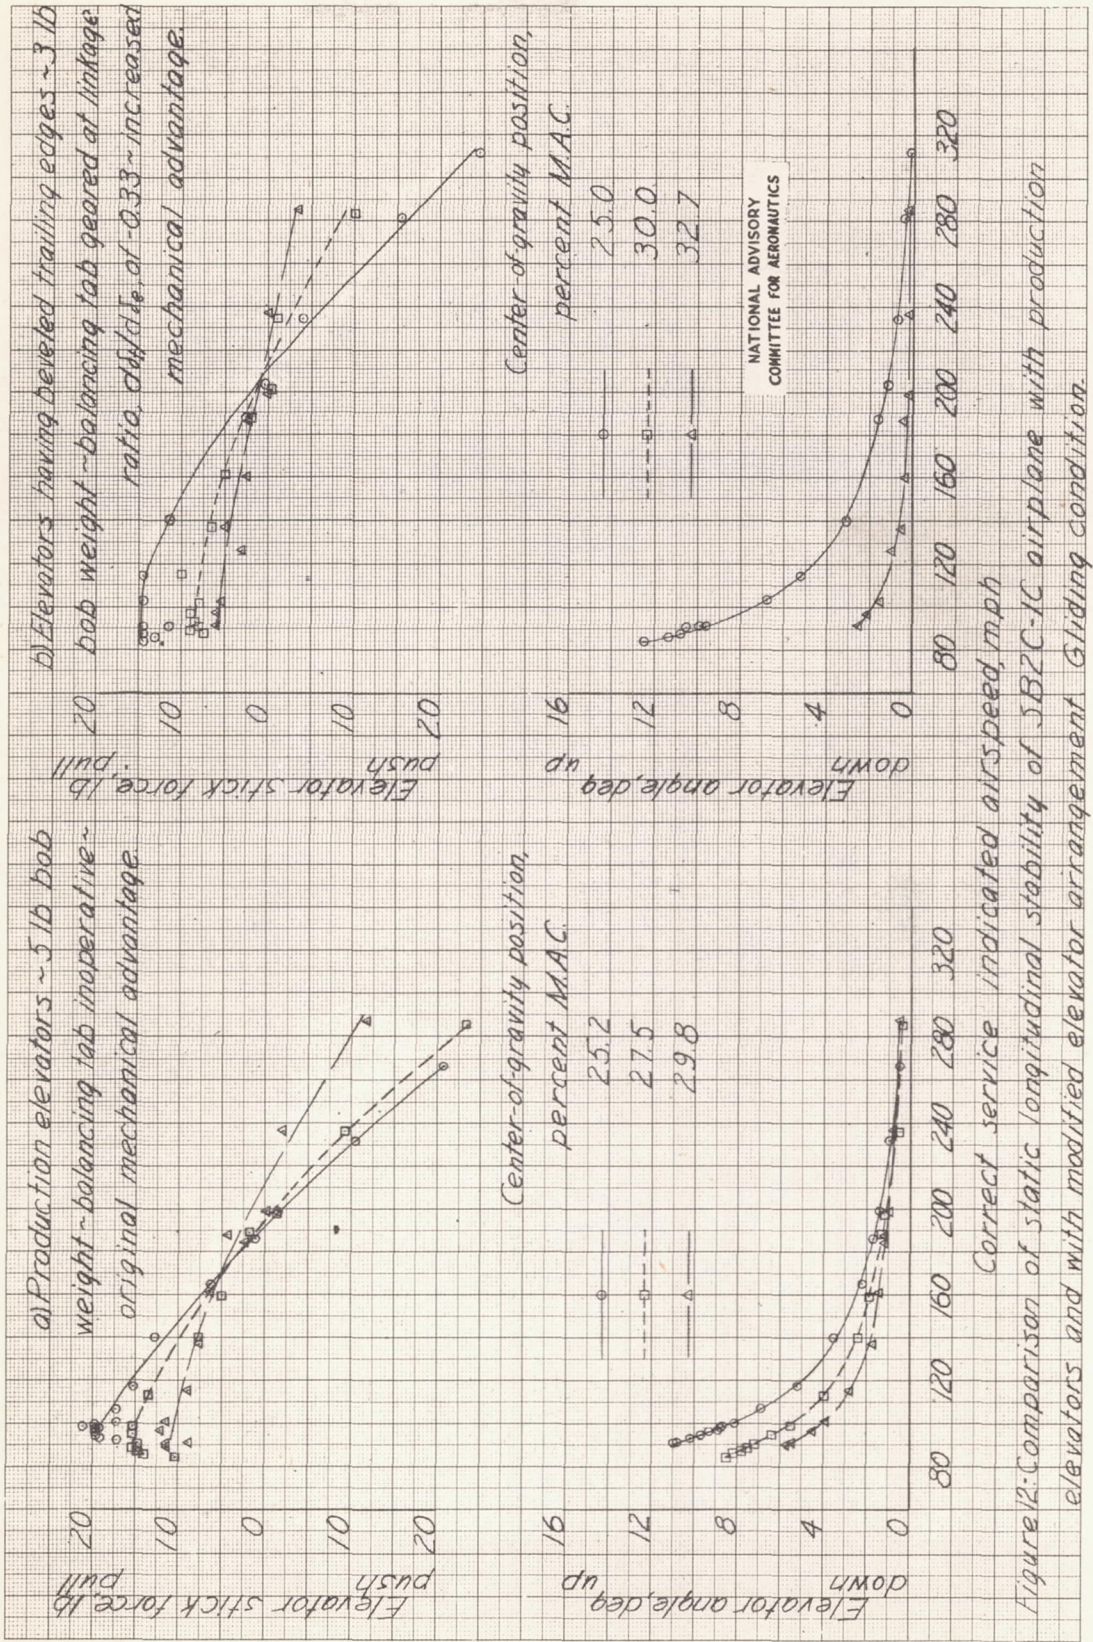 a) Production elevators ~ 5 lb bob
weight ~ balancing tab inoperative ~
original mechanical advantage.
20
10
0
10
20
Elevator stick force, lb
pull
push
Center-of-gravity position,
percent M.A.C.
25.2
27.5
29.8
16
12
8
4
0
Elevator angle, deg
up
down
80 120 160 200 240 280 320
b) Elevators having beveled trailing edges ~ 3 lb
bob weight ~ balancing tab geared at linkage
ratio, dδt/dδe, of -0.33 ~ increased
mechanical advantage.
20
10
0
10
20
Elevator stick force, lb
pull
push
Center-of-gravity position,
percent M.A.C.
25.0
30.0
32.7
NATIONAL ADVISORY
COMMITTEE FOR AERONAUTICS
16
12
8
4
0
Elevator angle, deg
up
down
80 120 160 200 240 280 320
Correct service indicated airspeed, mph
Figure 12: Comparison of static longitudinal stability of SB2C-1C airplane with production
elevators and with modified elevator arrangement. Gliding condition.